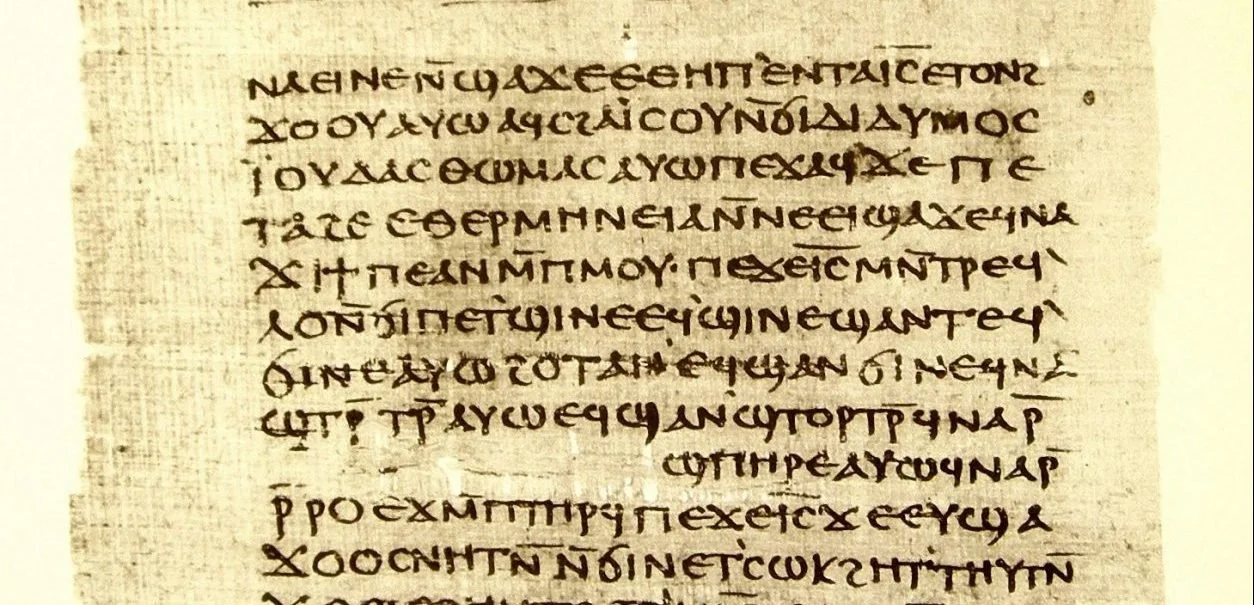 ⲛⲁⲉⲓⲛⲉⲛ̄ϣⲁϫⲉⲉⲑⲏⲡ`ⲉⲛⲧⲁⲓ̅ⲥ̅ⲉⲧⲟⲛϩ
ϫⲟⲟⲩⲁⲩⲱⲁϥⲥϩⲁⲓ̈ⲥⲟⲩⲛ̄ϭⲓⲇⲓⲇⲩⲙⲟⲥ
ⲓ̈ⲟⲩⲇⲁⲥⲑⲱⲙⲁⲥⲁⲩⲱⲡⲉϫⲁϥϫⲉⲡⲉ
ⲧⲁϩⲉⲉⲑⲉⲣⲙⲏⲛⲉⲓⲁⲛ̄ⲛⲉⲉⲓϣⲁϫⲉϥⲛⲁ
ϫⲓϯⲡⲉⲁⲛⲙ̄ⲡⲙⲟⲩ·ⲡⲉϫⲉⲓ̅ⲥ̅ⲙⲛ̄ⲧⲣⲉϥ`
ⲗⲟⲛ̄ϭⲓⲡⲉⲧ`ϣⲓⲛⲉⲉϥ`ϣⲓⲛⲉϣⲁⲛⲧⲉϥ`
ϭⲓⲛⲉⲁⲩⲱϩⲟⲧⲁⲛ`ⲉϥϣⲁⲛϭⲓⲛⲉϥⲛⲁ
ϣⲧⲣ̄ⲧⲣ̄ⲁⲩⲱⲉϥϣⲁⲛ`ϣⲧⲟⲣⲧⲣ̄ϥⲛⲁⲣ̄
ϣⲡⲏⲣⲉⲁⲩⲱϥⲛⲁⲣ̄
ⲣ̄ⲣⲟⲉϫⲙ̄ⲡⲧⲏⲣϥⲡⲉϫⲉⲓ̅ⲥ̅ϫⲉⲉⲩϣⲁ
ϫⲟⲟⲥⲛⲏⲧⲛ̄ⲛ̄ϭⲓⲛⲉⲧ`ⲥⲱⲕϩⲏⲧ`ⲧⲏⲩⲧⲛ̄